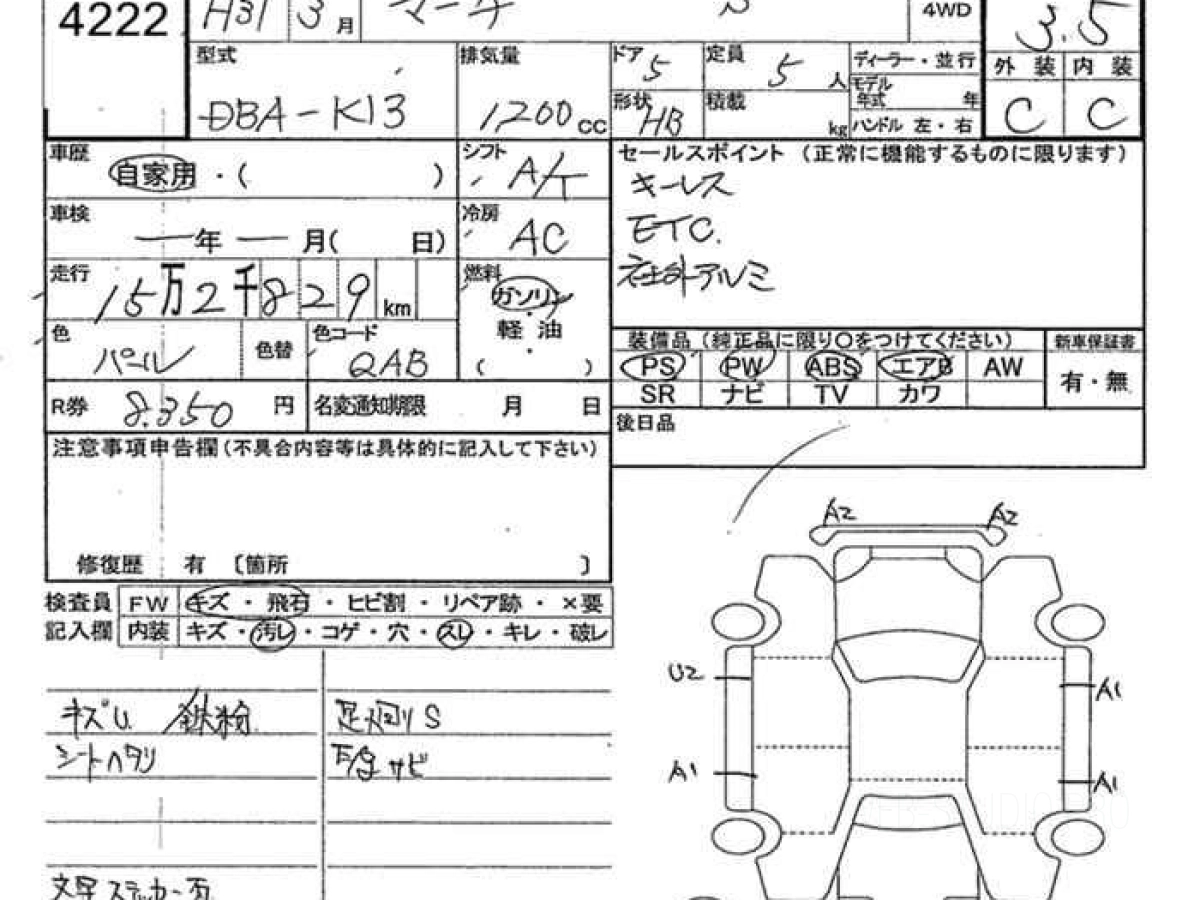 4222
H31 3月 マーチ S 4WD 3.5
型式 排気量 ドア 5 定員 5人 ディーラー・並行 外装 内装
モデル年式 年
DBA-K13 1200cc 形状 HB 積載 kg ハンドル 左・右 C C
車歴 自家用・( ) シフト A/T セールスポイント (正常に機能するものに限ります)
キーレス
車検 年 月( 日) 冷房 AC ETC.
走行 15万2千829km 燃料 ガソリン 社外アルミ
軽油
( )
色 パール 色替 色コード QAB
装備品 (純正品に限り○をつけてください) 新車保証書
PS PW ABS エアB AW 有・無
SR ナビ TV カワ
R券 8.350円 名変通知期限 月 日
後日品
注意事項申告欄(不具合内容等は具体的に記入して下さい)
修復歴 有 〔箇所 〕
検査員 FW キズ・飛石・ヒビ割・リペア跡・×要
記入欄 内装 キズ・汚レ・コゲ・穴・スレ・キレ・破レ
A2 A2
U2 A1
A1 A1
キズU 鉄粉 足廻りS
シートヘタリ 下廻サビ